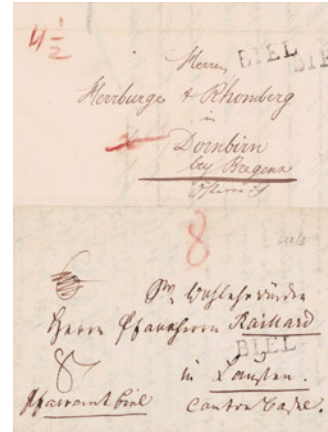 4 1/2
BIEL
BIE
Herren
Herrburger & Rhomberg
in
Dornbirn
bey Bregenz
Österreich
8
Wohlehrwürden
Herrn Pfarrherrn Raillard
BIEL
in Lausen.
Pfarramt Biel
Canton Basel.